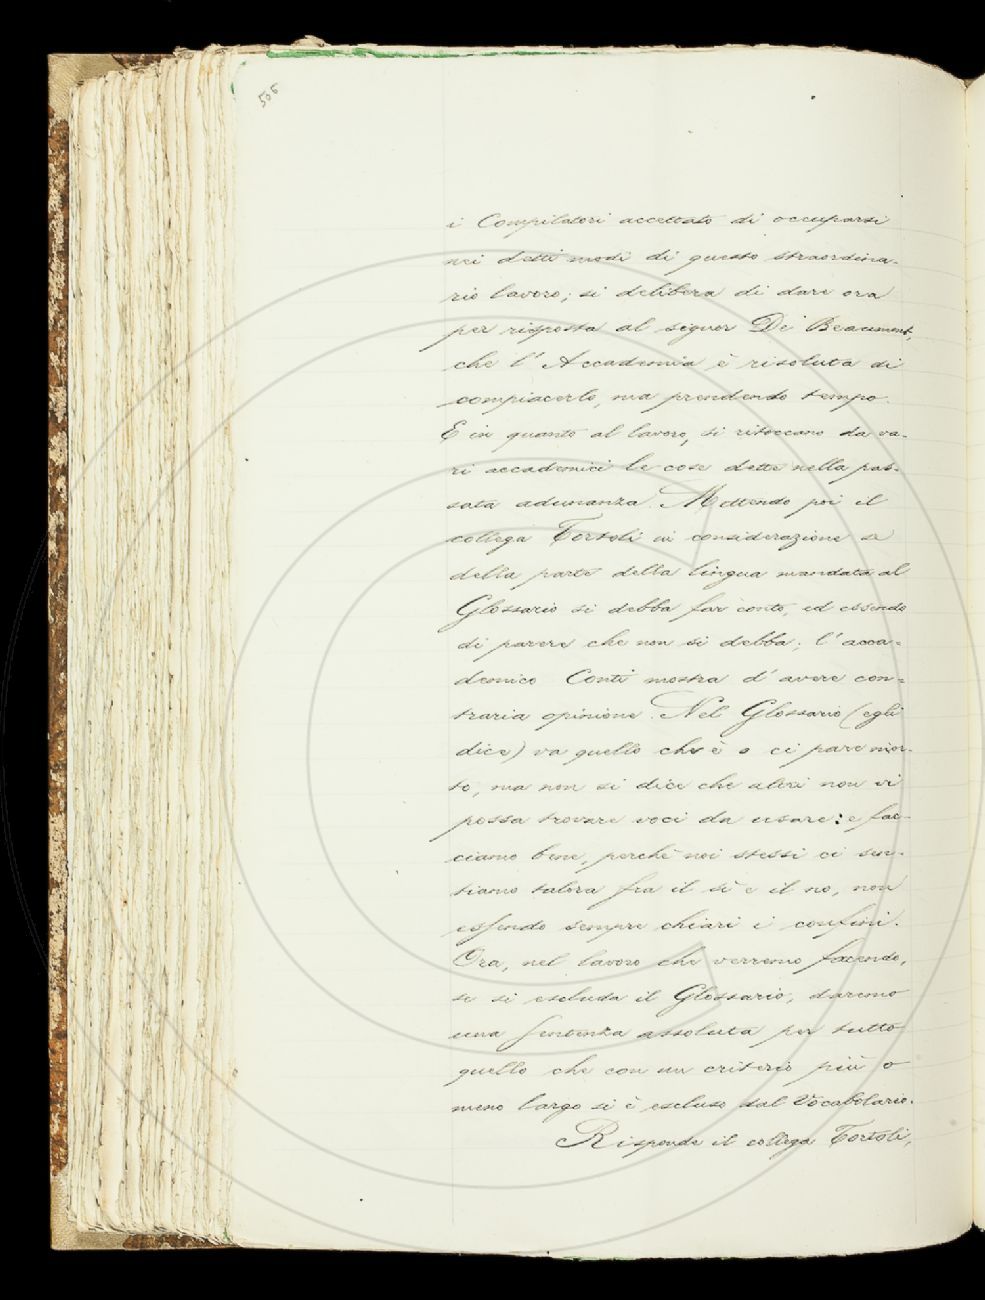 506
i Compilatori accettato di occuparsi
nei detti modi di questo straordina-
rio lavoro; si delibera di dare ora
per risposta al signor De Beaumont,
che l'Accademia è risoluta di
compiacerlo, ma prendendo tempo.
E in quanto al lavoro, si ritoccano da va-
ri accademici le cose dette nella pas-
sata adunanza. Mettendo poi il
collega Tortoli in considerazione se
della parte della lingua mandata al
Glossario si debba far conto, ed essendo
di parere che non si debba; l'acca-
demico Conti mostra d'avere con-
traria opinione. Nel Glossario (egli
dice) va quello che è o ci pare mor-
to, ma non si dice che altri non vi
possa trovare voci da usare: e fac-
ciamo bene, perchè noi stessi ci sen-
tiamo talora fra il sì e il no, non
essendo sempre chiari i confini.
Ora, nel lavoro che verremo facendo,
se si escluda il Glossario, daremo
una sentenza assoluta per tutto
quello che con un criterio più o
meno largo si è escluso dal Vocabolario.
Risponde il collega Tortoli,